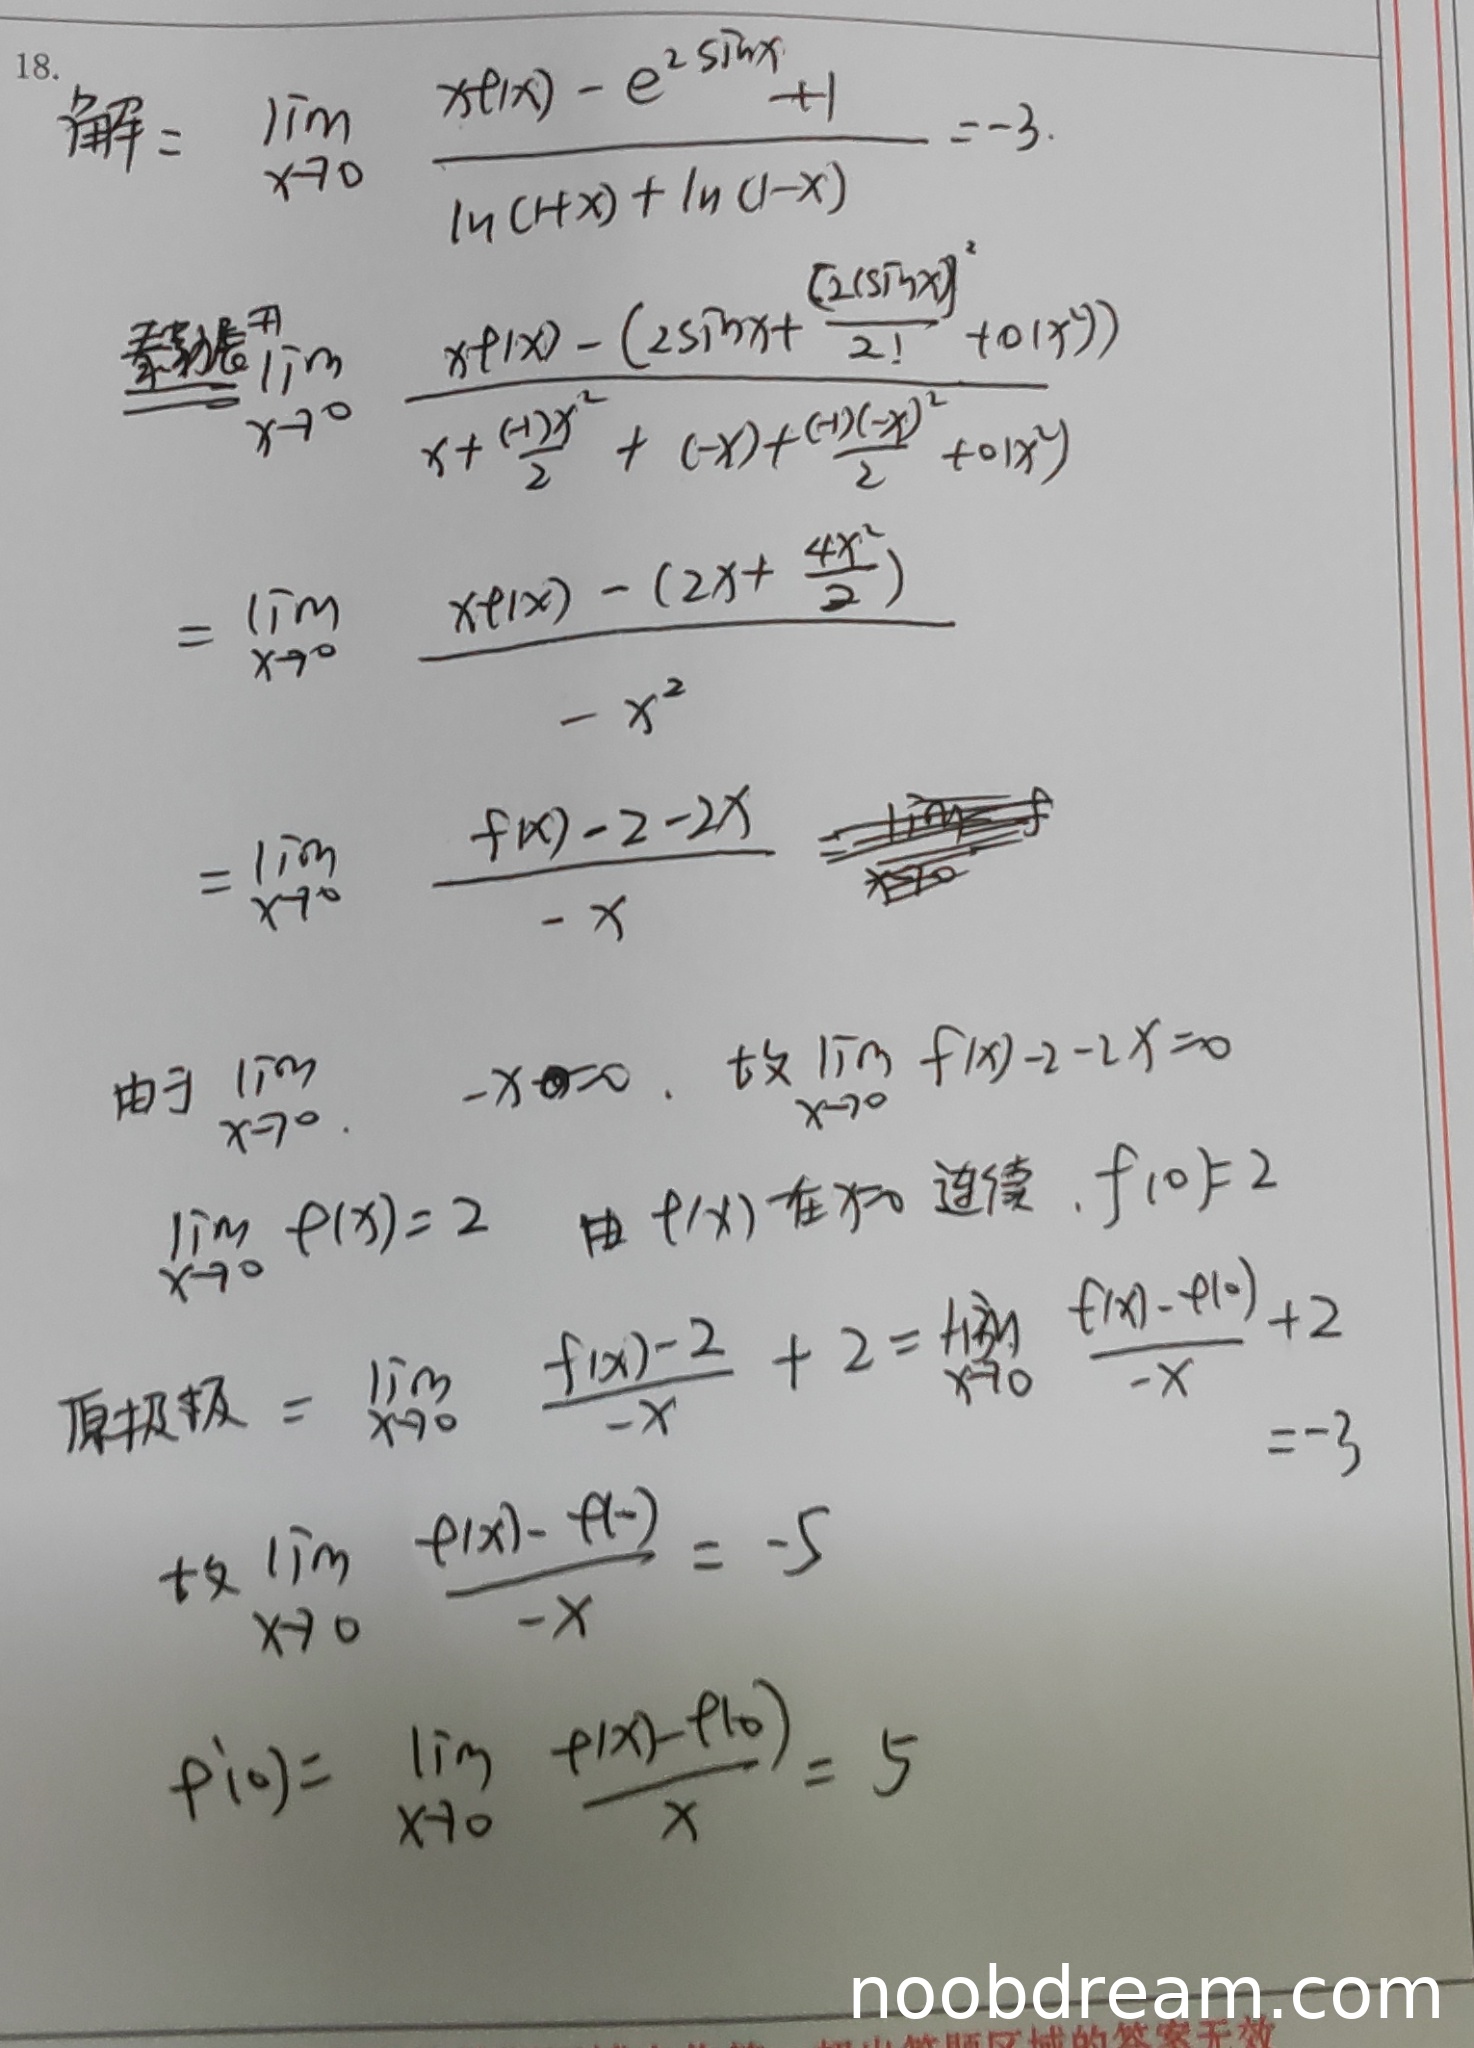 18.
解: lim x→0 (xf(x) - e^{2sinx} + 1)/(ln(1+x) + ln(1-x)) = -3.
泰勒展开 lim x→0 (xf(x) - (2sinx + [2(sinx)]^2/2! + o(x^2)))/(x + (-1)x^2/2 + (-x) + (-1)(-x)^2/2 + o(x^2))
= lim x→0 (xf(x) - (2x + 4x^2/2))/(-x^2)
= lim x→0 (f(x) - 2 - 2x)/(-x)
由于 lim x→0. -x = 0. 故 lim x→0 f(x) - 2 - 2x = 0
lim x→0 f(x) = 2 由 f(x) 在 x=0 连续. f(0) = 2
原极极 = lim x→0 (f(x) - 2)/(-x) + 2 = lim x→0 (f(x) - f(0))/(-x) + 2
= -3
故 lim x→0 (f(x) - f(0))/(-x) = -5
f'(0) = lim x→0 (f(x) - f(0))/x = 5
noobdream.com
超出答题区域的答案无效